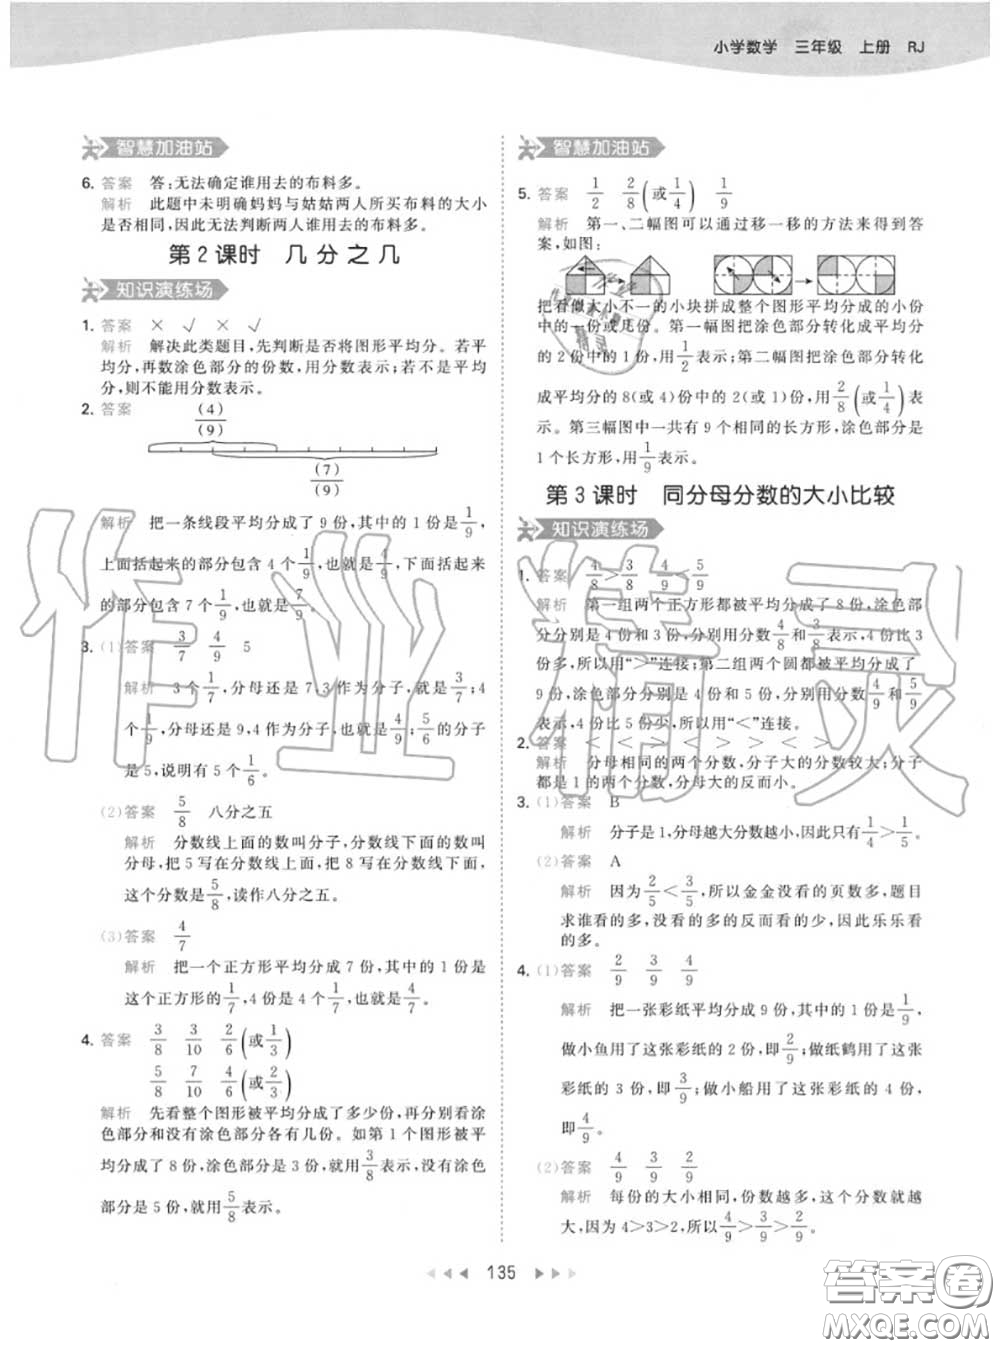 小学数学 三年级 上册 RJ
智慧加油站
6. 答案 答:无法确定谁用去的布料多。
解析 此题中未明确妈妈与姑姑两人所买布料的大小
是否相同,因此无法判断两人谁用去的布料多。
第2课时 几分之几
知识演练场
1. 答案 × √ × √
解析 解决此类题目,先判断是否将图形平均分。若平
均分,再数涂色部分的份数,用分数表示;若不是平均
分,则不能用分数表示。
2. 答案 (4)/(9)
(7)/(9)
解析 把一条线段平均分成了9份,其中的1份是1/9,
上面括起来的部分包含4个1/9,也就是4/9,下面括起来
的部分包含7个1/9,也就是7/9。
3. (1)答案 3/7 4/9 5
解析 3个1/7,分母还是7,3作为分子,就是3/7;4
个1/9,分母还是9,4作为分子,就是4/9;5/6的分子
是5,说明有5个1/6。
(2)答案 5/8 八分之五
解析 分数线上面的数叫分子,分数线下面的数叫
分母,把5写在分数线上面,把8写在分数线下面,
这个分数是5/8,读作八分之五。
(3)答案 4/7
解析 把一个正方形平均分成7份,其中的1份是
这个正方形的1/7,4份是4个1/7,也就是4/7。
4. 答案 3/8 3/10 2/6(或1/3)
5/8 7/10 4/6(或2/3)
解析 先看整个图形被平均分成了多少份,再分别看涂
色部分和没有涂色部分各有几份。如第1个图形被平
均分成了8份,涂色部分是3份,就用3/8表示,没有涂色
部分是5份,就用5/8表示。
智慧加油站
5. 答案 1/2 2/8(或1/4) 1/9
解析 第一、二幅图可以通过移一移的方法来得到答
案,如图:
把看似大小不一的小块拼成整个图形平均分成的小份
中的一份或几份。第一幅图把涂色部分转化成平均分
的2份中的1份,用1/2表示;第二幅图把涂色部分转化
成平均分的8(或4)份中的2(或1)份,用2/8(或1/4)表
示。第三幅图中一共有9个相同的长方形,涂色部分是
1个长方形,用1/9表示。
第3课时 同分母分数的大小比较
知识演练场
1. 答案 4/8>3/8 4/9<5/9
解析 第一组两个正方形都被平均分成了8份,涂色部
分分别是4份和3份,分别用分数4/8和3/8表示,4份比3
份多,所以用“>”连接;第二组两个圆都被平均分成了
9份,涂色部分分别是4份和5份,分别用分数4/9和5/9
表示,4份比5份少,所以用“<”连接。
2. 答案 < < < > > > > >
解析 分母相同的两个分数,分子大的分数较大;分子
都是1的两个分数,分母大的反而小。
3. (1)答案 B
解析 分子是1,分母越大分数越小,因此只有1/4>1/5。
(2)答案 A
解析 因为2/5<3/5,所以金金没看的页数多,题目
求谁看的多,没看的多的反而看的少,因此乐乐看
的多。
4. (1)答案 2/9 3/9 4/9
解析 把一张彩纸平均分成9份,其中的1份是1/9,
做小鱼用了这张彩纸的2份,即2/9;做纸鹤用了这张
彩纸的3份,即3/9;做小船用了这张彩纸的4份,
即4/9。
(2)答案 4/9 3/9 2/9
解析 每份的大小相同,份数越多,这个分数就越
大,因为4>3>2,所以4/9>3/9>2/9。
135
作业精灵
答案圈
MXQE.COM